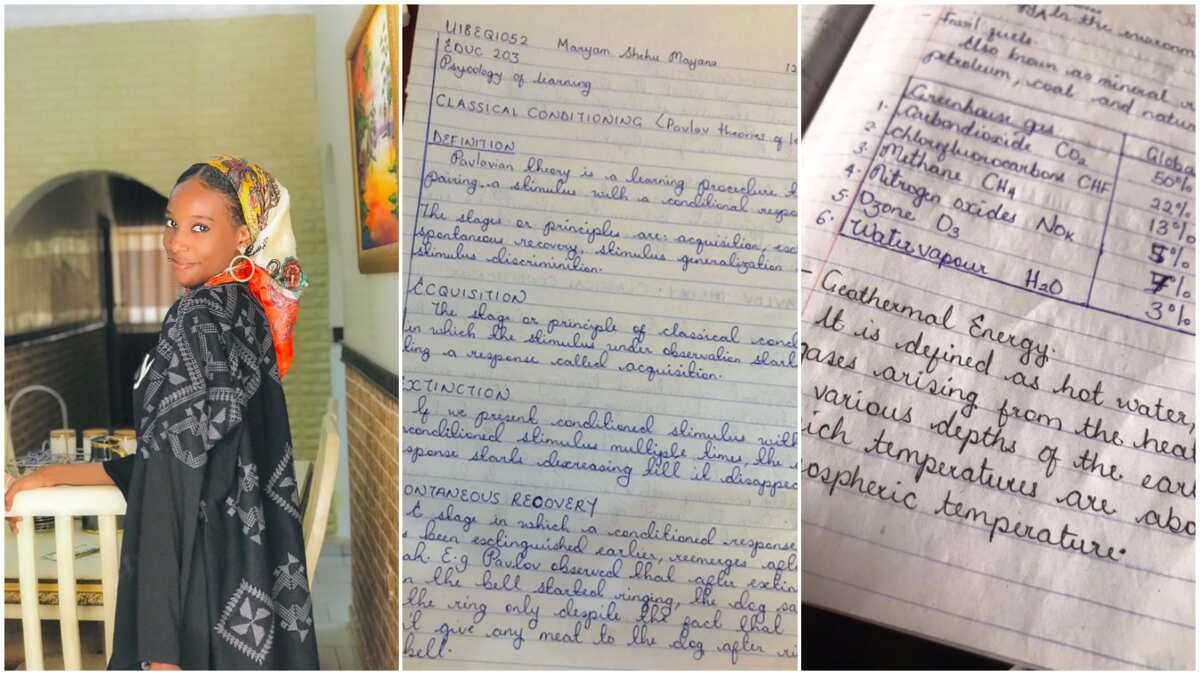 U18EQ1052 Maryam Shehu Mayana 12
EDUC 203
Psycology of learning
CLASSICAL CONDITIONING (Pavlov theories of le
DEFINITION
Pavlovian theory is a learning procedure
pairing a stimulus with a conditional respo
The stages or principles are: acquisition, exc
spontaneous recovery, stimulus generalization
stimulus discrimination.
ACQUISITION
The stage or principle of classical cond
in which the stimulus under observation star
ting a response called acquisition.
EXTINCTION
If we present conditioned stimulus with
conditioned stimulus multiple times, the
sponse starts decreasing till it disappea
ONTANEOUS RECOVERY
A stage in which a conditioned response
s been exctinguished earlier, reemerges afte
ah. E.g Pavlov observed that after extin
n the bell started ringing, the dog sa
the ring only despite the fact that
t give any meat to the dog after ri
bell.
in the environm
- Fossil fuels.
Also known as mineral
petroleum, coal and natur
Greenhouse gas Globa
1. Carbondioxide CO2 50%
2. Chloroflurocarbons CHF 22%
3. Methane CH4 13%
4. Nitrogen oxides NOx 5%
5. Ozone O3 7%
6. Water vapour H2O 3%
- Geothermal Energy.
It is defined as hot water,
gases arising from the heat
various depths of the ear
ich temperatures are abo
ospheric temperature.